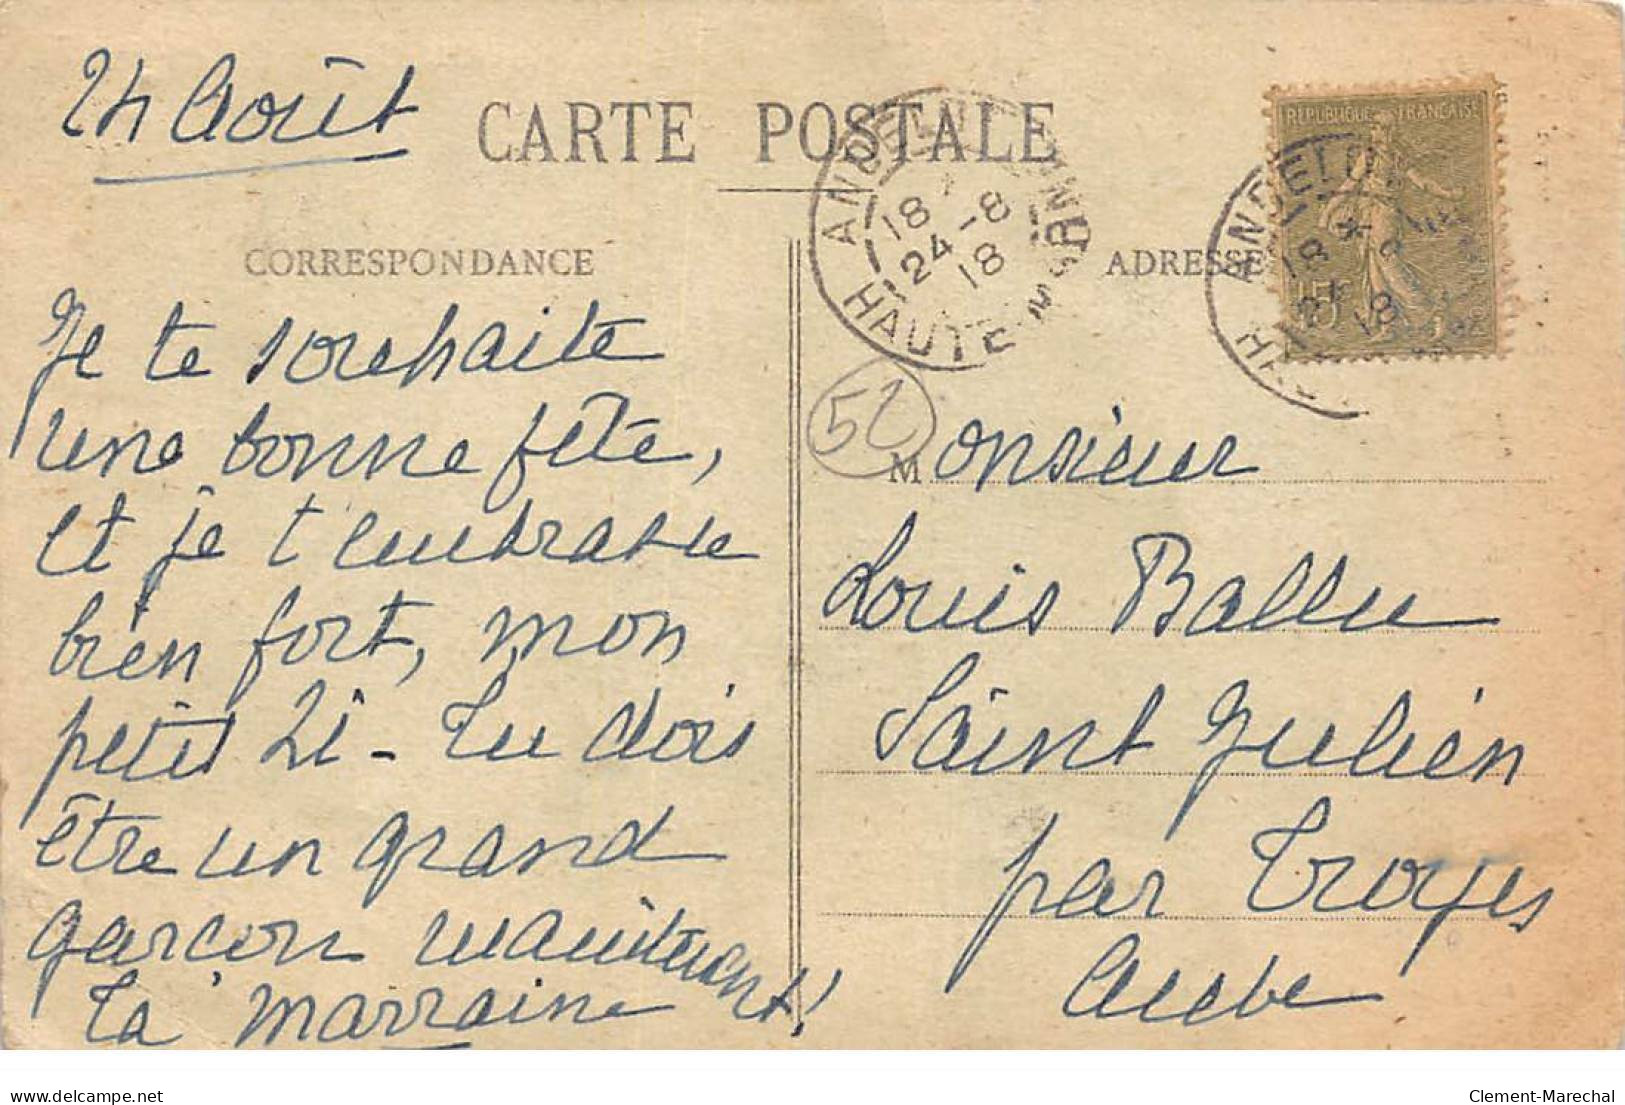 24 Août
CARTE POSTALE
CORRESPONDANCE
Je te souhaite
une bonne fête,
et je t'embrasse
bien fort, mon
petit Li - Tu dois
être un grand
garçon maintenant!
Ta Marraine
ANDELOT
18 *
24 -8
18
HAUTE-MARNE
ADRESSE
REPUBLIQUE FRANÇAISE
15
ANDELOT
18 *
24
18
52
Monsieur
Louis Ballu
Saint Julien
par Troyes
Aube
delcampe.net
Clement-Marechal